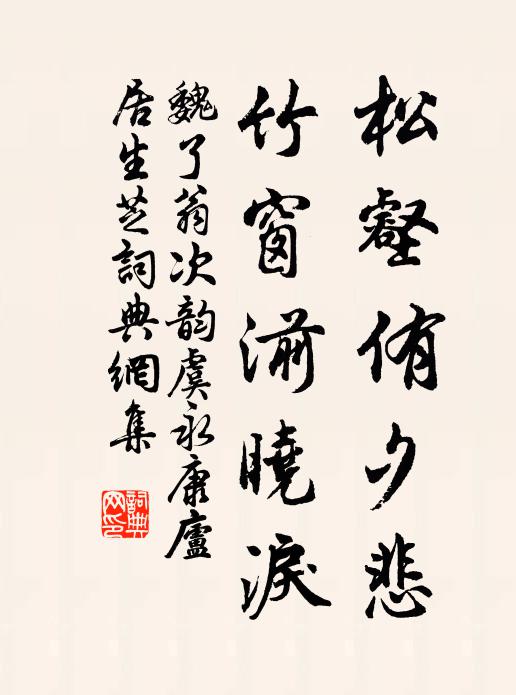 松壑侑夕悲
竹窗湔曉淚
魏了翁次韵虞永康廬
居生芝詞典網集
詞典
网印